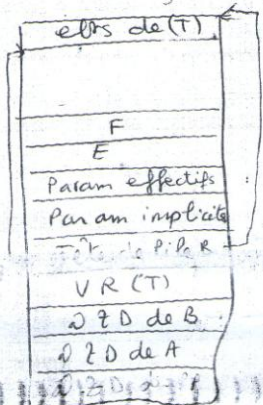 elts de (T)
F
E
Param effectifs
Param implicite
Tête de Pile R
V R (T)
∂ Z D de B
∂ Z D de A
∂ Z D